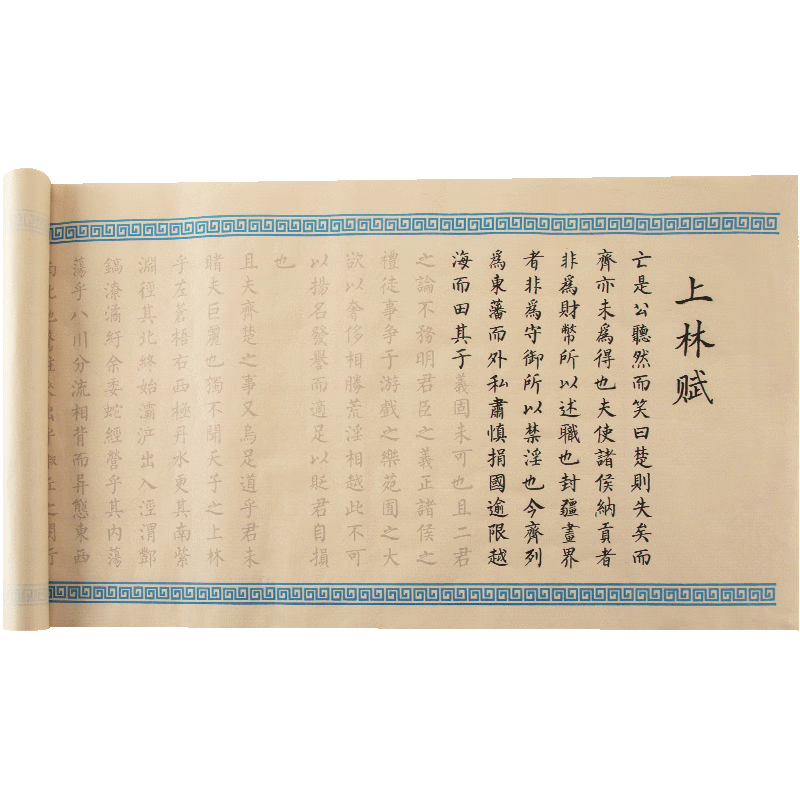 上林赋
亡是公聽然而笑曰楚則失矣而
齊亦未爲得也夫使諸侯納貢者
非爲財幣所以述職也封疆畫界
者非爲守御所以禁淫也今齊列
爲東藩而外私肅慎捐國逾限越
海而田其于義固未可也且二君
之論不務明君臣之義正諸侯之
禮徒事争于游戲之樂苑囿之大
欲以奢侈相勝荒淫相越此不可
以揚名發譽而適足以貶君自損
也
且夫齊楚之事又烏足道乎君未
睹夫巨麗也獨不聞天子之上林
乎左蒼梧右西極丹水更其南紫
淵徑其北終始灞滻出入涇渭酆
鎬潦潏紆余委蛇經營乎其内蕩
蕩乎八川分流相背而异態東西